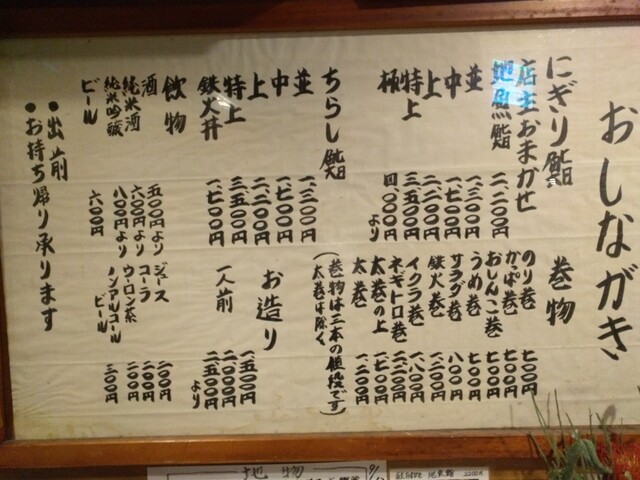 おしながき
にぎり鮨
店主おまかせ
地魚鮨 二、二〇〇円
並 一、三〇〇円
中 一、七〇〇円
上 二、二〇〇円
特上 三、五〇〇円
極 四、〇〇〇円より
ちらし鮨
並 一、三〇〇円
中 一、七〇〇円
上 二、二〇〇円
特上 三、五〇〇円
鉄火丼 一、七〇〇円
飲物
酒 五〇〇円より
純米酒 六〇〇円より
純米吟醸 八〇〇円より
ビール 六〇〇円
●出前
●お持ち帰り承ります
巻物
のり巻 七〇〇円
かっぱ巻 七〇〇円
おしんこ巻 七〇〇円
うめ巻 七〇〇円
サラダ巻 八〇〇円
鉄火巻 一、二〇〇円
イクラ巻 一、八〇〇円
ネギトロ巻 二、二〇〇円
太巻の上 一、七〇〇円
太巻 一、二〇〇円
(巻物は三本の値段です)
太巻は除く
お造り
一人前 一、五〇〇円
二、〇〇〇円
二、五〇〇円より
ジュース 二〇〇円
コーラ 二〇〇円
ウーロン茶 二〇〇円
ノンアルコール
ビール 三〇〇円
地物